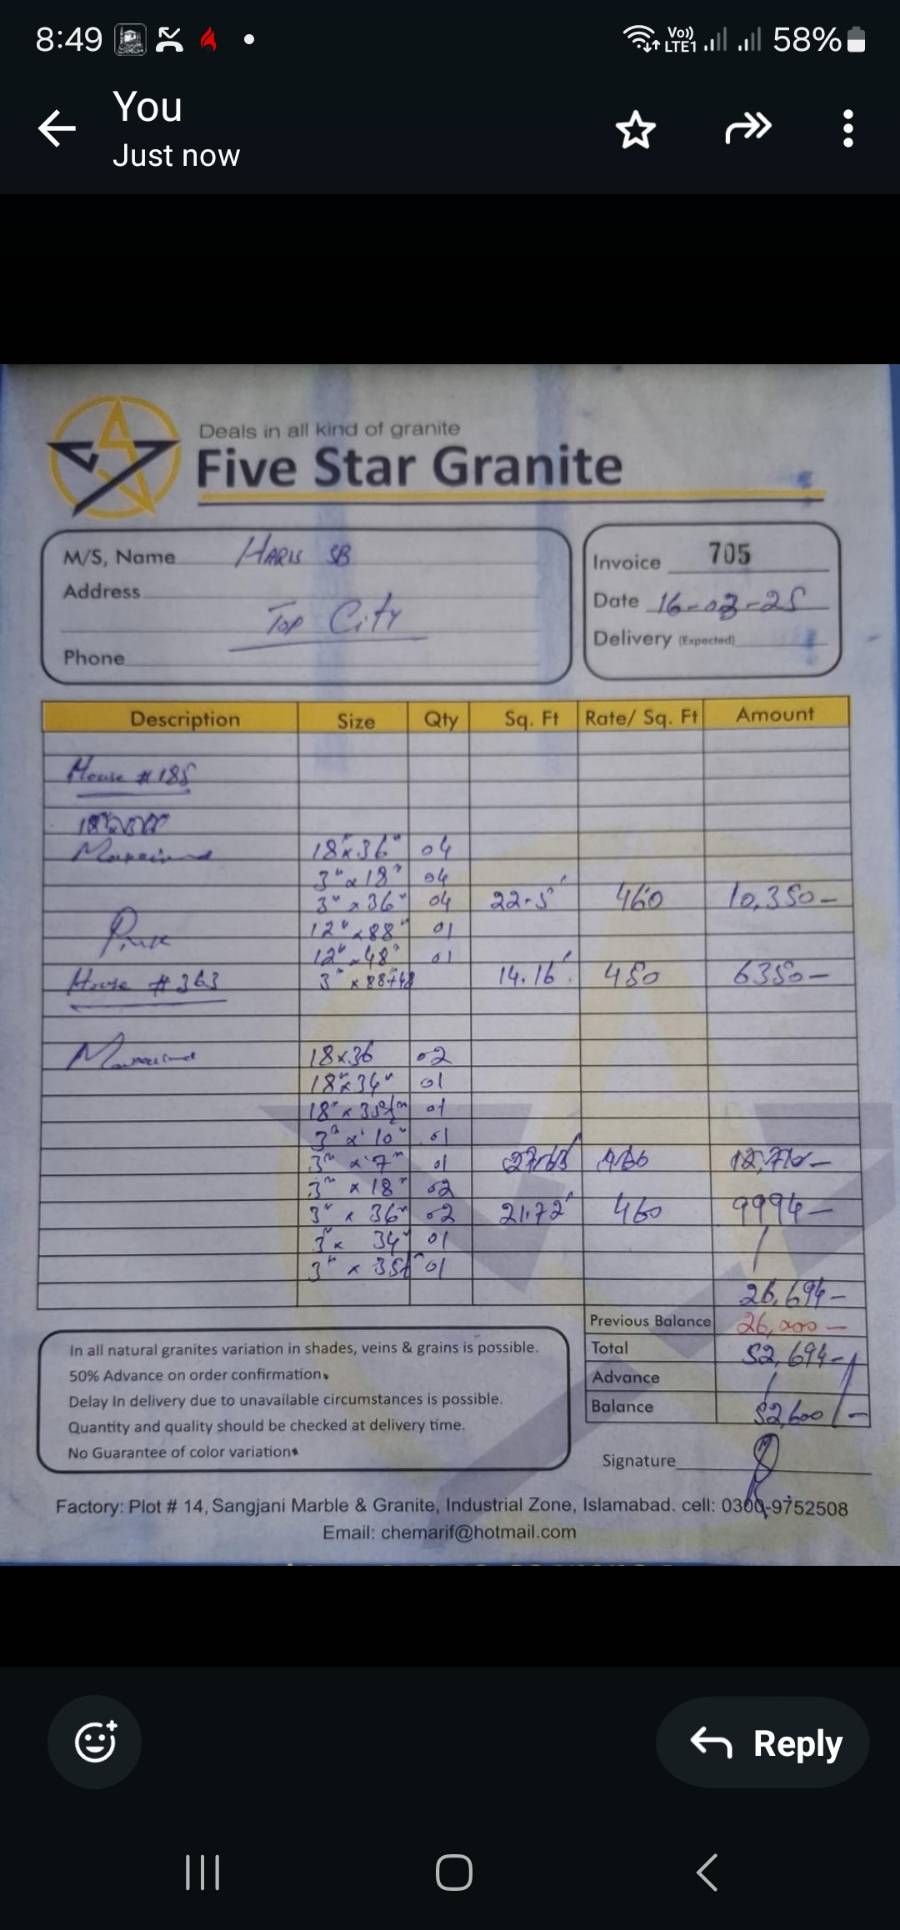 8:49 Vo)) LTE1 58%
You
Just now
Deals in all kind of granite
Five Star Granite
M/S, Name HARIS SB
Address
Top City
Phone
Invoice 705
Date 16-03-25
Delivery (Expected)
Description Size Qty Sq. Ft Rate/ Sq. Ft Amount
House # 185
18"x36" 04
3"x18" 04
3"x36" 04 22.5' 460 10,350-
Pink 12"x88" 01
12"x48" 01
House # 363 3"x88+48 14.16' 450 6350-
18x36 02
18"x34" 01
18"x 01
3"x10" 01
3"x7" 01
3"x18" 02
3"x36" 02 21.72' 460 9994-
3"x34" 01
3"x 01
26,694-
Previous Balance 26,000-
Total 52,694-
Advance
Balance 52,600/-
In all natural granites variation in shades, veins & grains is possible.
50% Advance on order confirmation.
Delay In delivery due to unavailable circumstances is possible.
Quantity and quality should be checked at delivery time.
No Guarantee of color variation.
Signature
Factory: Plot # 14, Sangjani Marble & Granite, Industrial Zone, Islamabad. cell: 0300-9752508
Email: chemarif@hotmail.com
Reply